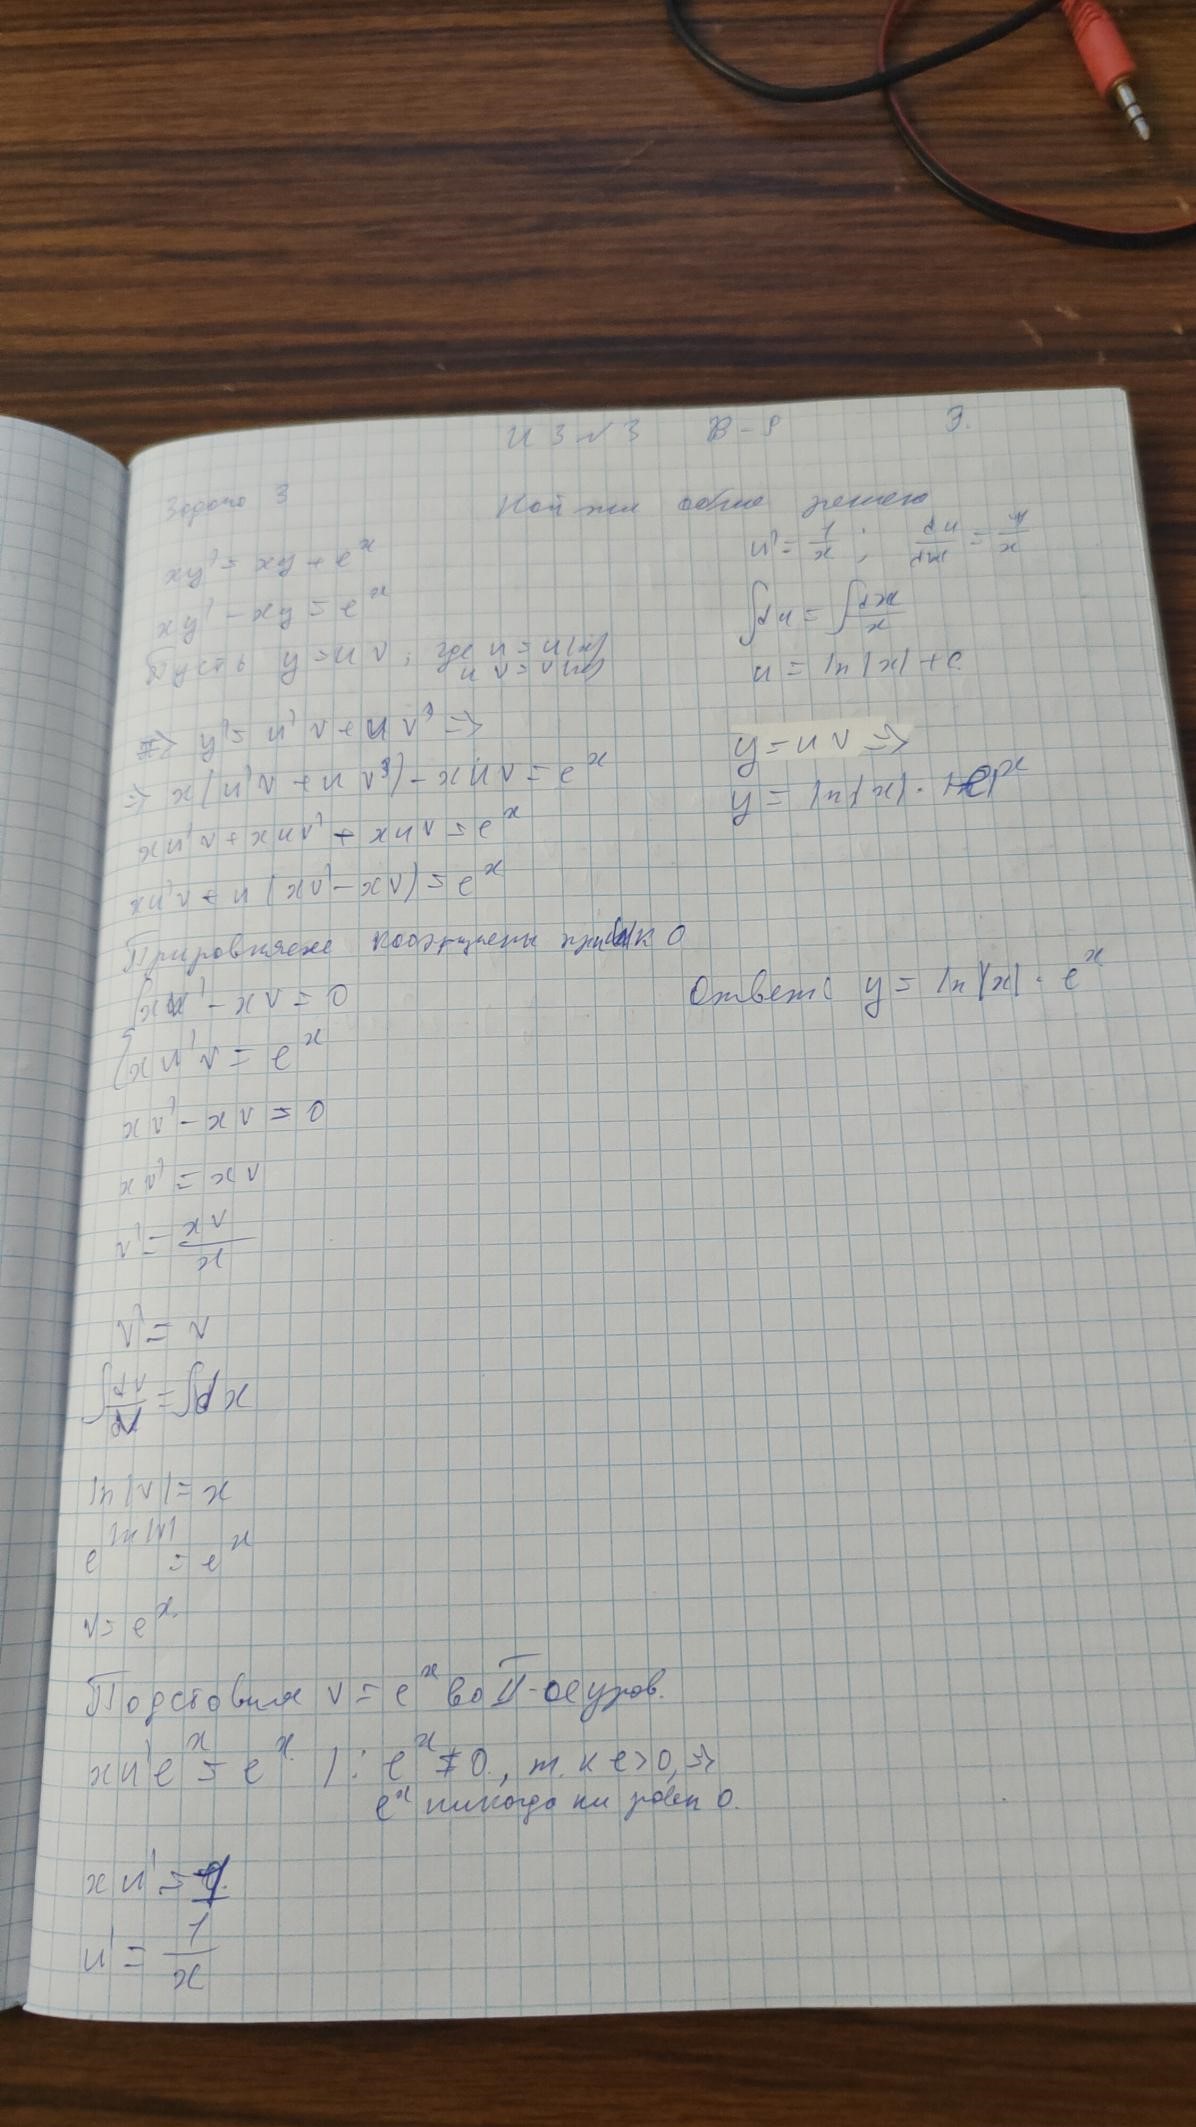 ИЗ №3 В-8 3.
Задача 3 Найти общее решение
xy' = xy + e^x
xy' - xy = e^x
Пусть y = uv; где u = u(x)
и v = v(x)
=> y' = u'v + uv' =>
=> x(u'v + uv') - xuv = e^x
xu'v + xuv' + xuv = e^x
xu'v + u(xv' - xv) = e^x
Приравняем к 0
{xv' - xv = 0
{xu'v = e^x
xv' - xv = 0
xv' = xv
v' = xv/x
v' = v
∫dv/v = ∫dx
ln|v| = x
e^ln|v| = e^x
v = e^x
Подставим v = e^x во II-ое уров.
xu'e^x = e^x | : e^x ≠ 0, т.к e>0, =>
e^x никогда ни равен 0.
xu' = 1
u' = 1/x
u' = 1/x ;
∫du = ∫dx/x
u = ln|x| + c
y = uv =>
y = ln|x| · e^x
Ответ: y = ln|x| · e^x